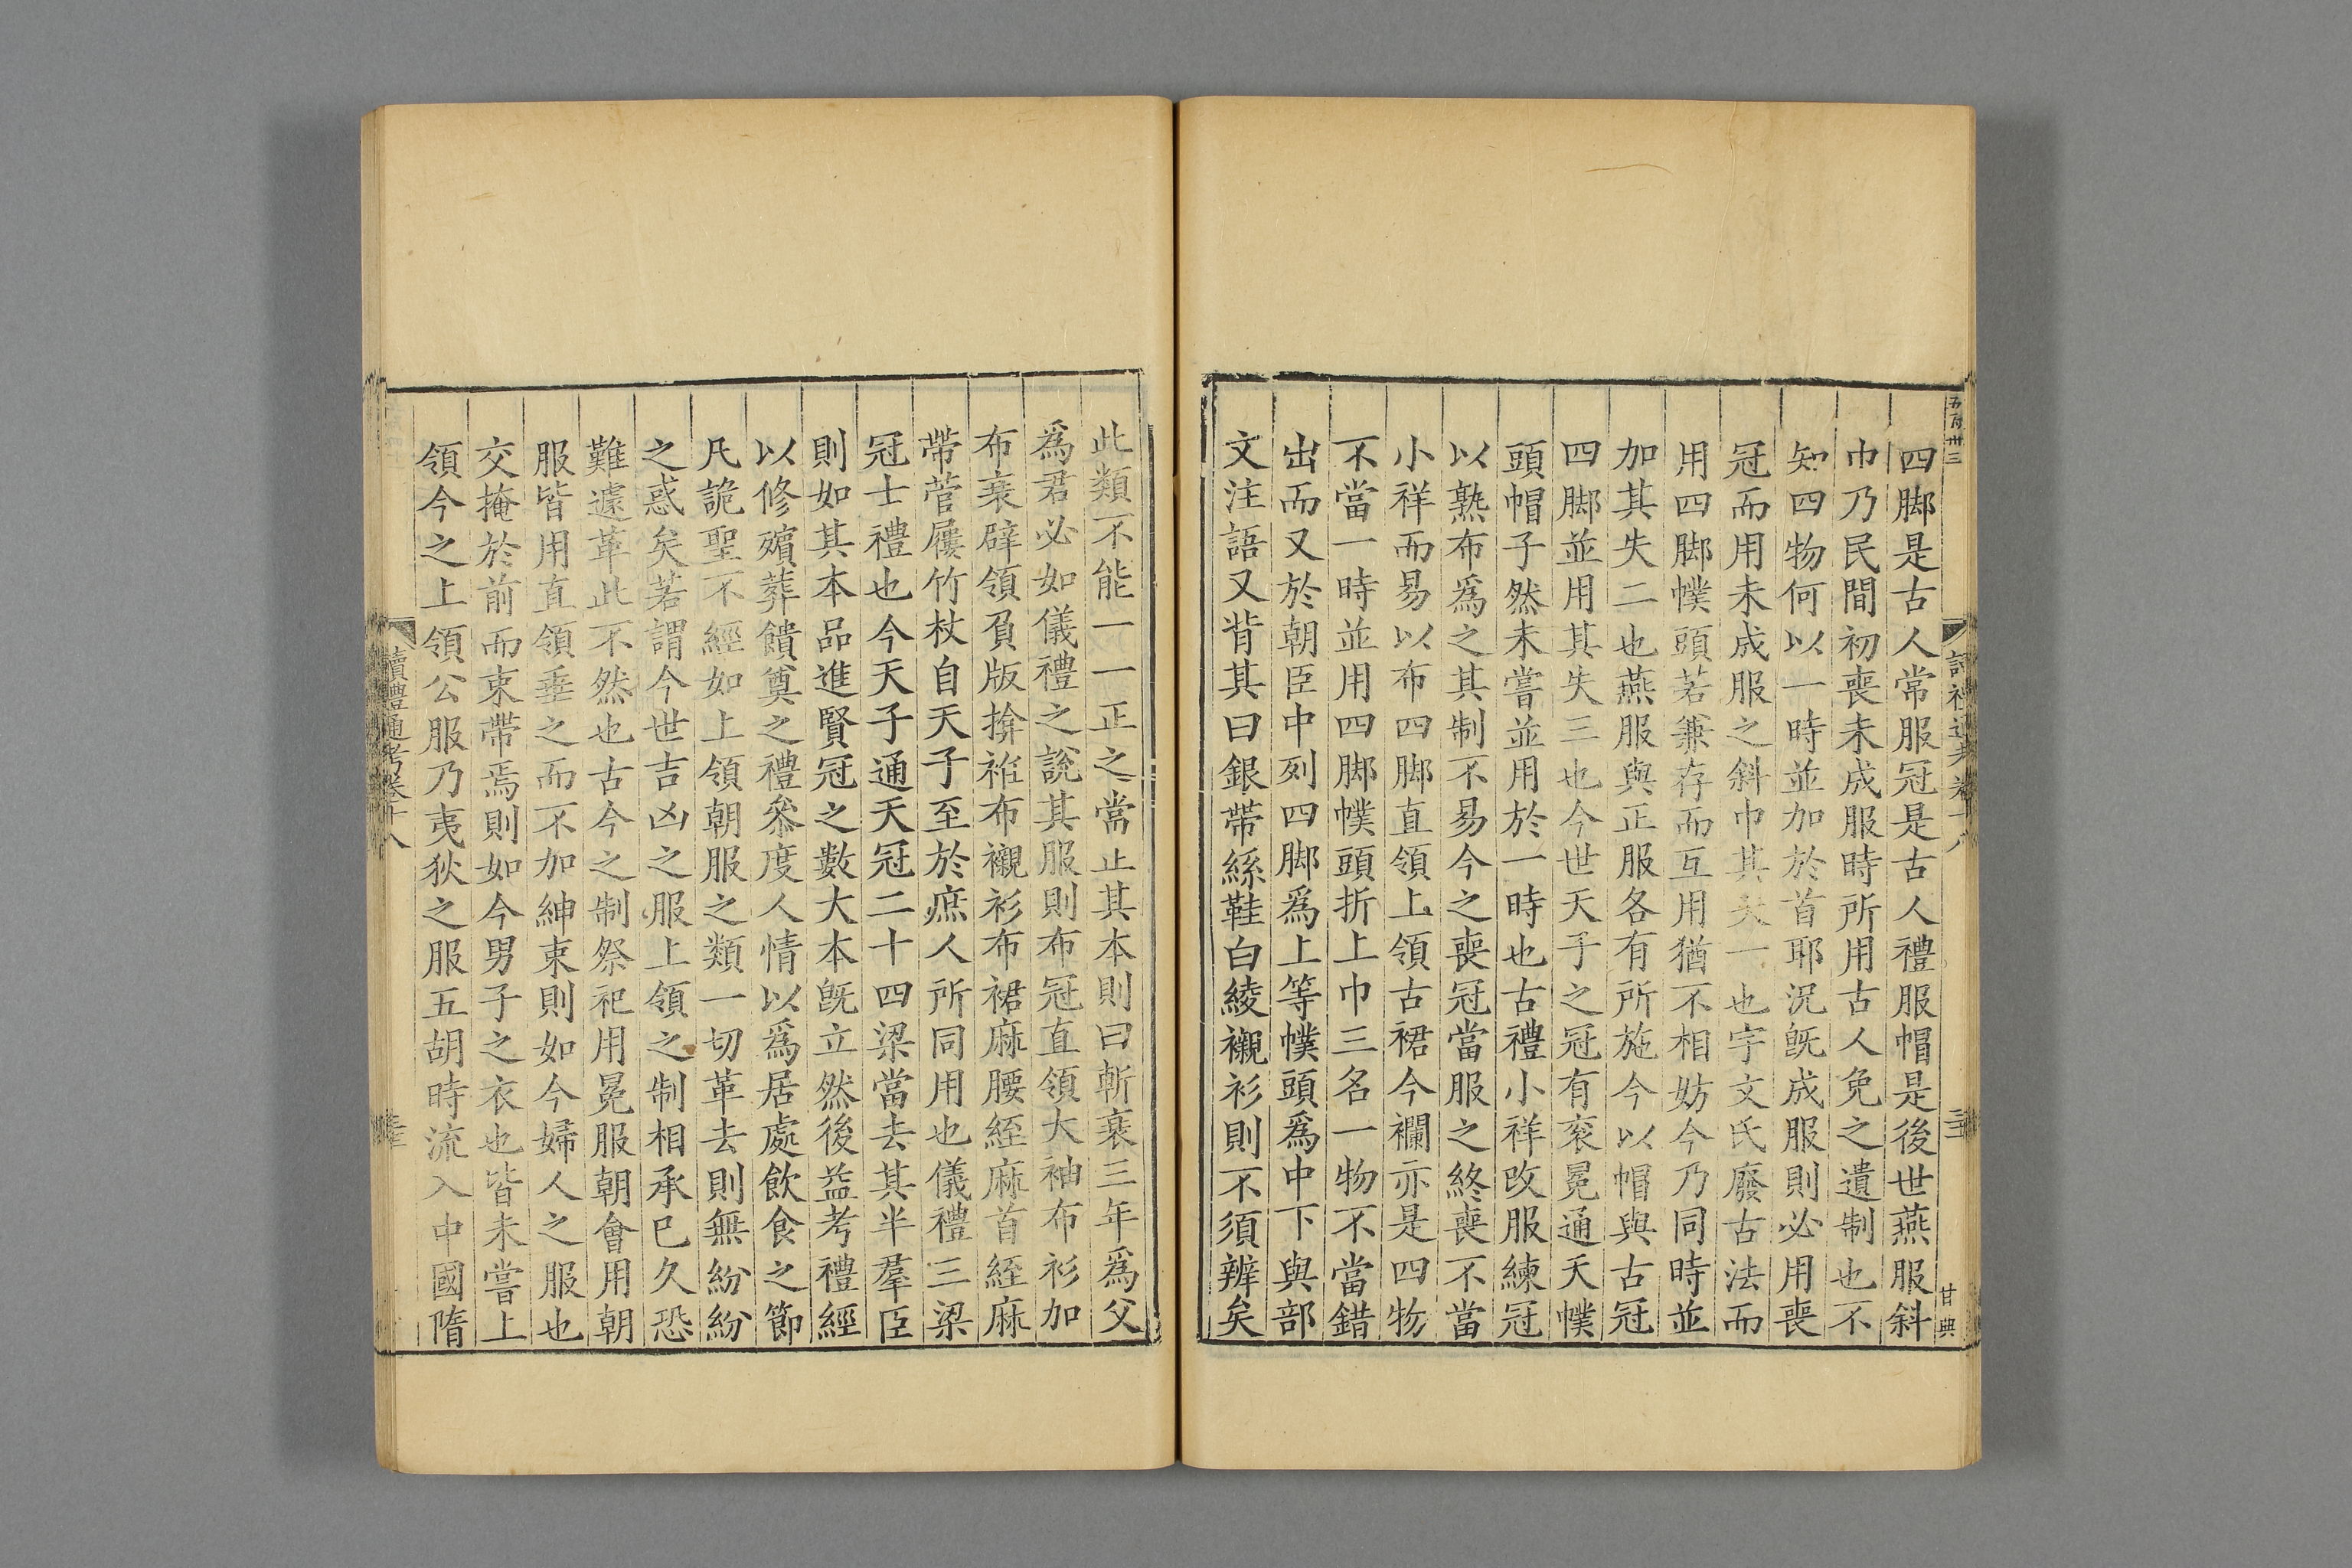 四脚是古人常服冠是古人禮服帽是後世燕服斜
巾乃民間初喪未成服時所用古人免之遺制也不
知四物何以一時並加於首耶況旣成服則必用喪
冠而用未成服之斜巾其失一也宇文氏廢古法而
用四脚幞頭若兼存而互用猶不相妨今乃同時並
加其失二也燕服與正服各有所施今以帽與古冠
四脚並用其失三也今世天子之冠有衮冕通天幞
頭帽子然未嘗並用於一時也古禮小祥改服練冠
以熟布爲之其制不易今之喪冠當服之終喪不當
小祥而易以布四脚直領上領古裙今襴亦是四物
不當一時並用四脚幞頭折上巾三名一物不當錯
出而又於朝臣中列四脚爲上等幞頭爲中下與部
文注語又背其曰銀帶絲鞋白綾襯衫則不須辨矣
此類不能一一正之當止其本則曰斬衰三年爲父
爲君必如儀禮之說其服則布冠直領大袖布衫加
布衰辟領負版揜袵布襯衫布裙麻腰絰麻首絰麻
帶菅屨竹杖自天子至於庶人所同用也儀禮三梁
冠士禮也今天子通天冠二十四梁當去其半羣臣
則如其本品進賢冠之數大本旣立然後益考禮經
以修殯葬饋奠之禮叅度人情以爲居處飲食之節
凡詭聖不經如上領朝服之類一切革去則無紛紛
之惑矣若謂今世吉凶之服上領之制相承已久恐
難遽革此不然也古今之制祭祀用冕服朝會用朝
服皆用直領垂之而不加紳束則如今婦人之服也
交掩於前而束帶焉則如今男子之衣也皆未嘗上
領今之上領公服乃夷狄之服五胡時流入中國隋
讀禮通考卷十八